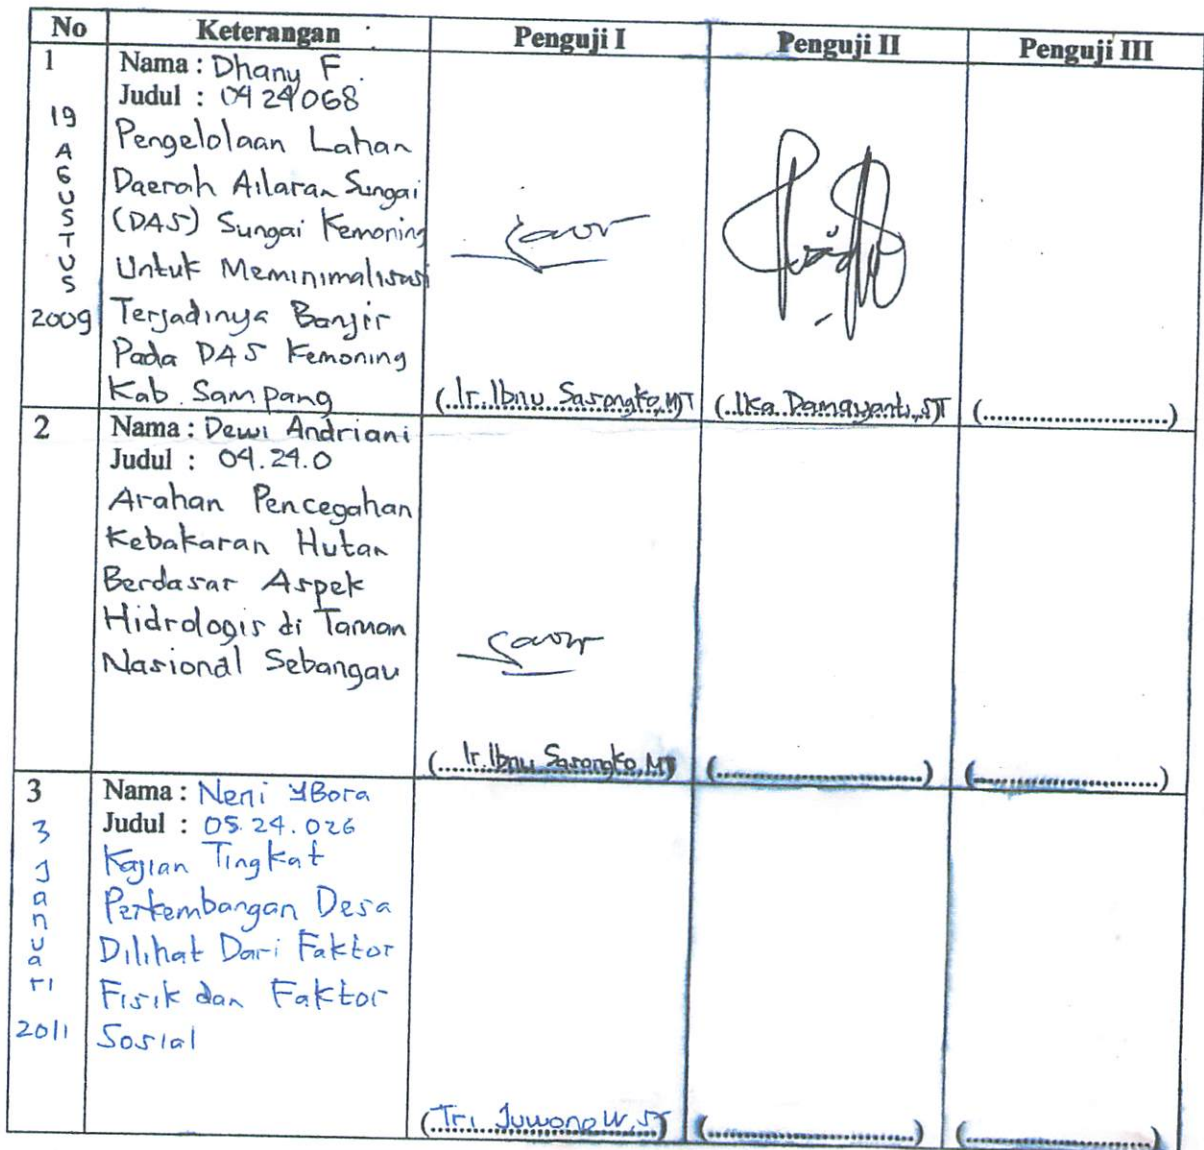 No Keterangan Penguji I Penguji II Penguji III
1
19
AGUSTUS
2009
Nama : Dhany F.
Judul : 0424068
Pengelolaan Lahan
Daerah Ailaran Sungai
(DAS) Sungai Kemoning
Untuk Meminimalisasi
Terjadinya Banjir
Pada DAS Kemoning
Kab. Sampang
(Ir. Ibnu Sasongko, MT) (Ika Damayanti, ST) (..........................)
2
Nama : Dewi Andriani
Judul : 04.24.0
Arahan Pencegahan
Kebakaran Hutan
Berdasar Aspek
Hidrologis di Taman
Nasional Sebangau
(Ir. Ibnu Sasongko, MT) (..........................) (..........................)
3
3
Januari
2011
Nama : Neni Bora
Judul : 05.24.026
Kajian Tingkat
Perkembangan Desa
Dilihat Dari Faktor
Fisik dan Faktor
Sosial
(Tri Juwono W, ST) (..........................) (..........................)